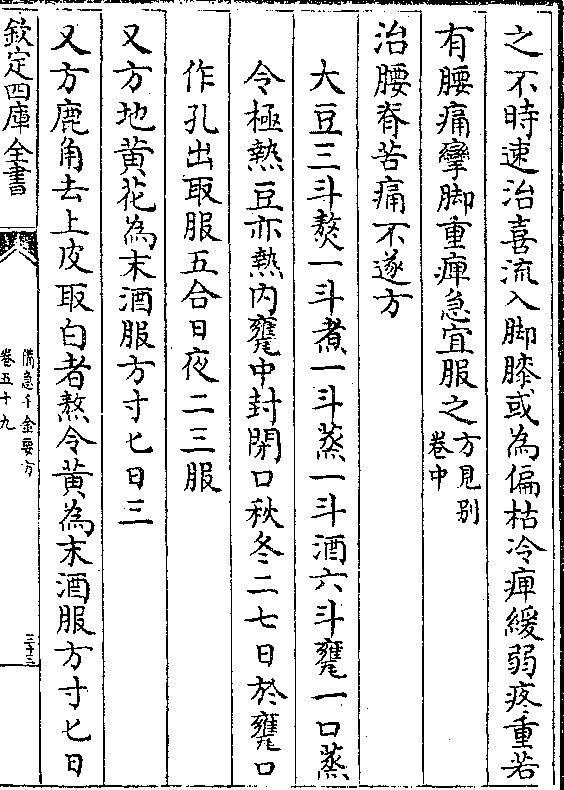 之不時速治喜流入脚膝或為偏枯冷痺緩弱疼重若
有腰痛攣脚重痺急宜服之方見别卷中
治腰脊苦痛不遂方
大豆三斗熬一斗煮一斗蒸一斗酒六斗甕一口蒸
令極熱豆亦熱内甕中封閉口秋冬二七日於甕口
作孔出取服五合日夜二三服
又方地黄花為末酒服方寸匕日三
又方鹿角去上皮取白者熬令黄為末酒服方寸匕日
欽定四庫全書
備急千金要方
卷五十九
三十三